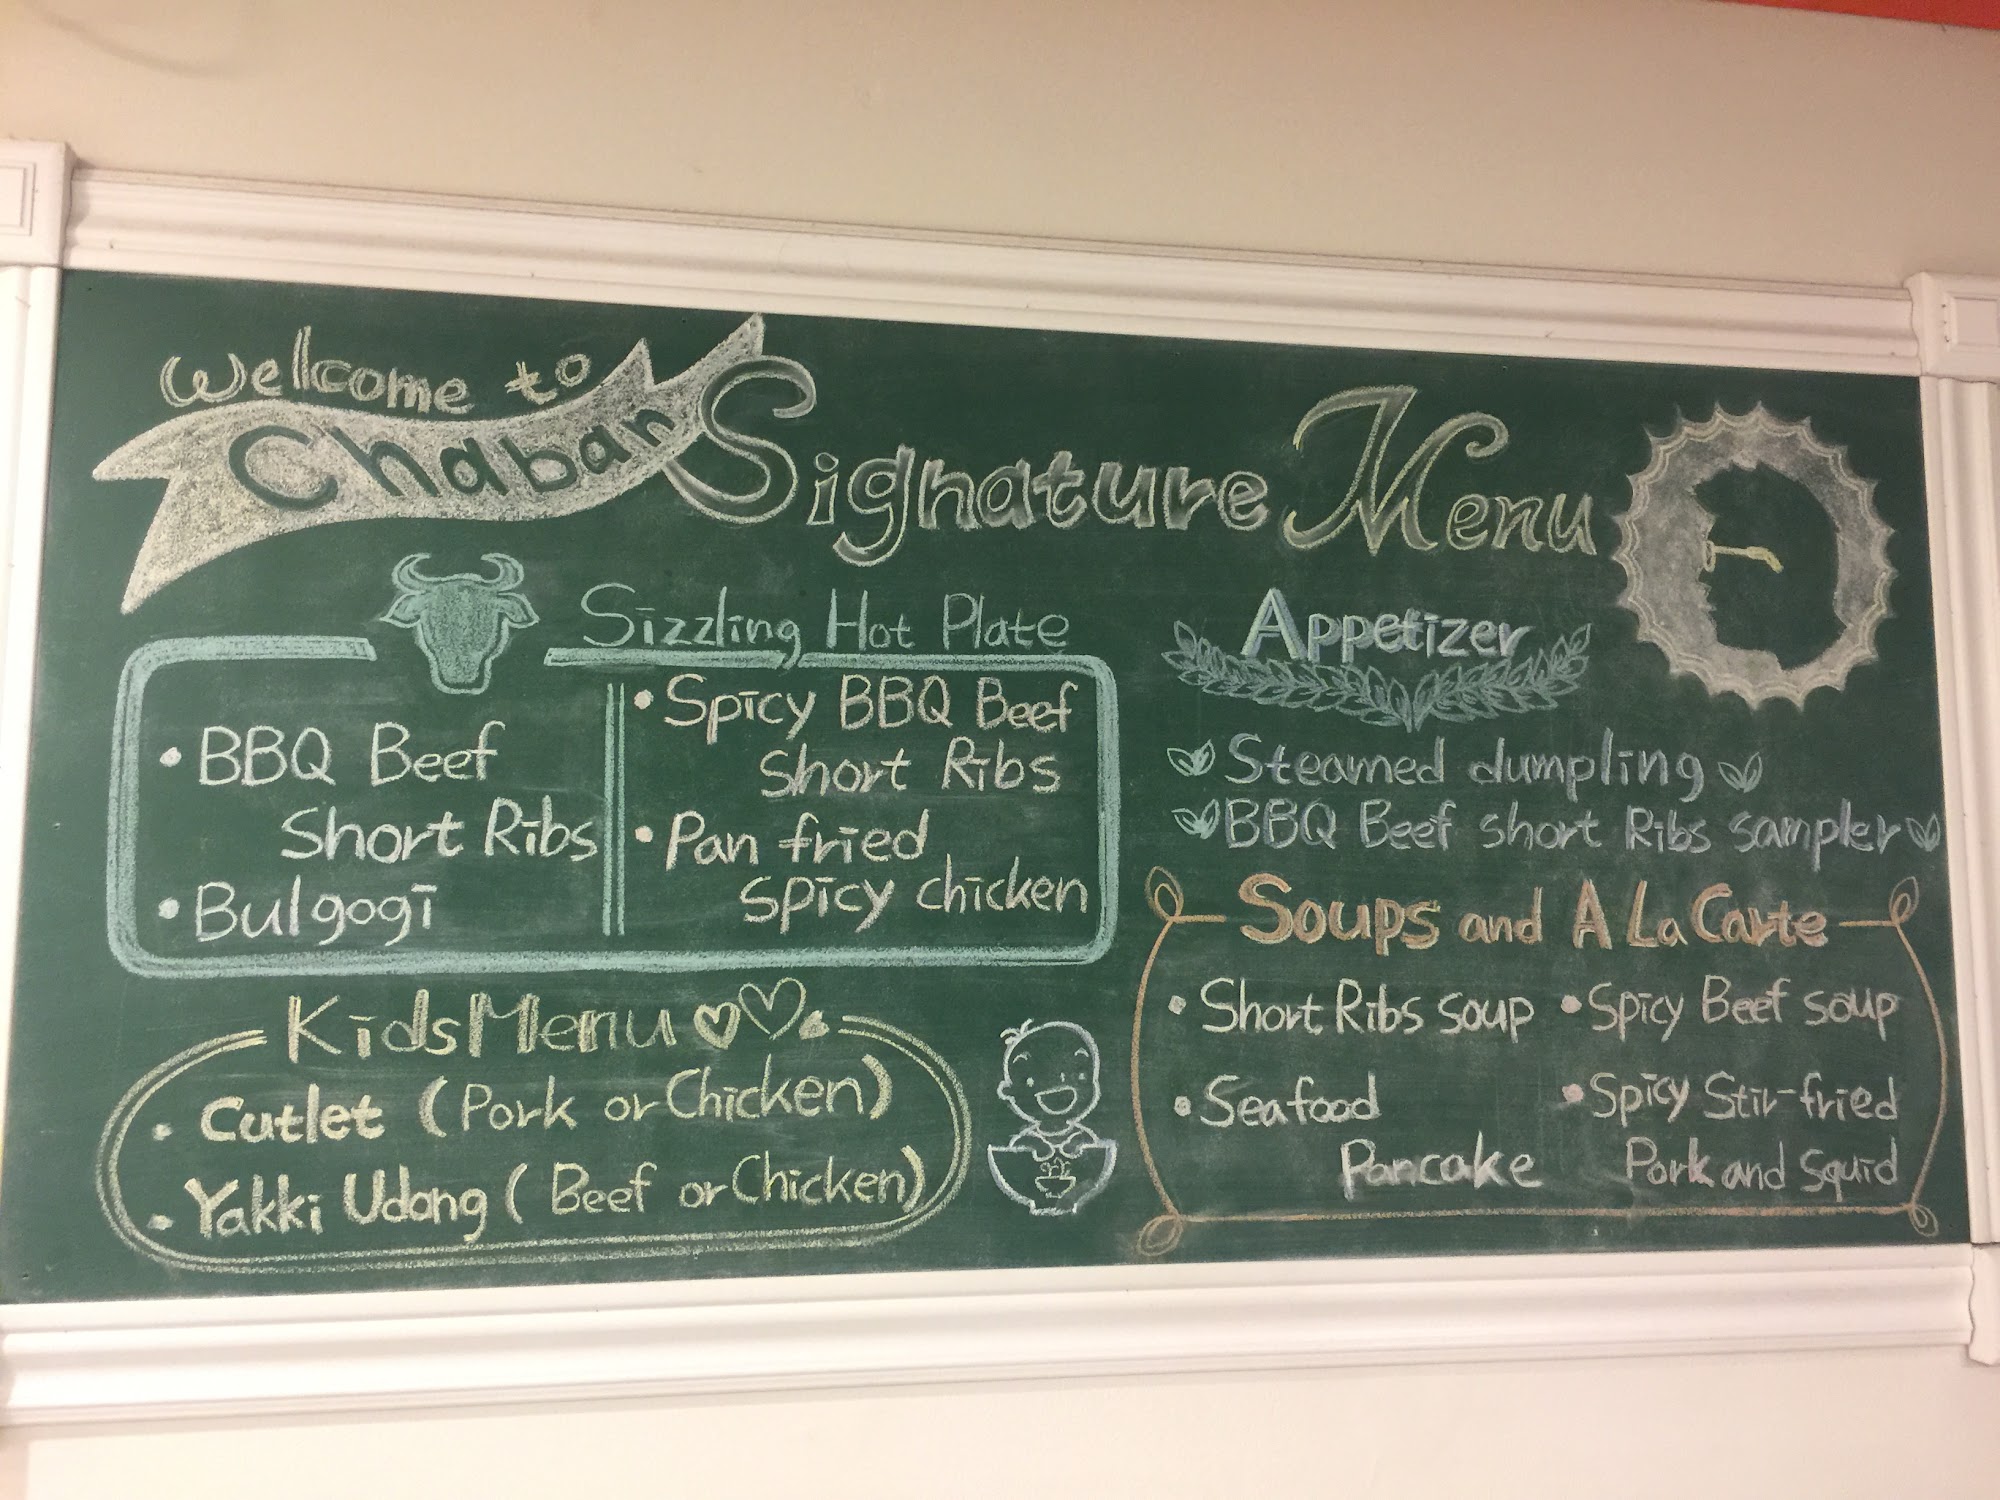 Welcome to
Chaban Signature Menu
Sizzling Hot Plate
• BBQ Beef
Short Ribs
• Bulgogi
• Spicy BBQ Beef
Short Ribs
• Pan fried
spicy chicken
Kids Menu
• Cutlet (Pork or Chicken)
• Yakki Udong (Beef or Chicken)
Appetizer
Steamed dumpling
BBQ Beef short Ribs sampler
Soups and A La Carte
• Short Ribs soup
• Seafood
Pancake
• Spicy Beef soup
• Spicy Stir-fried
Pork and Squid